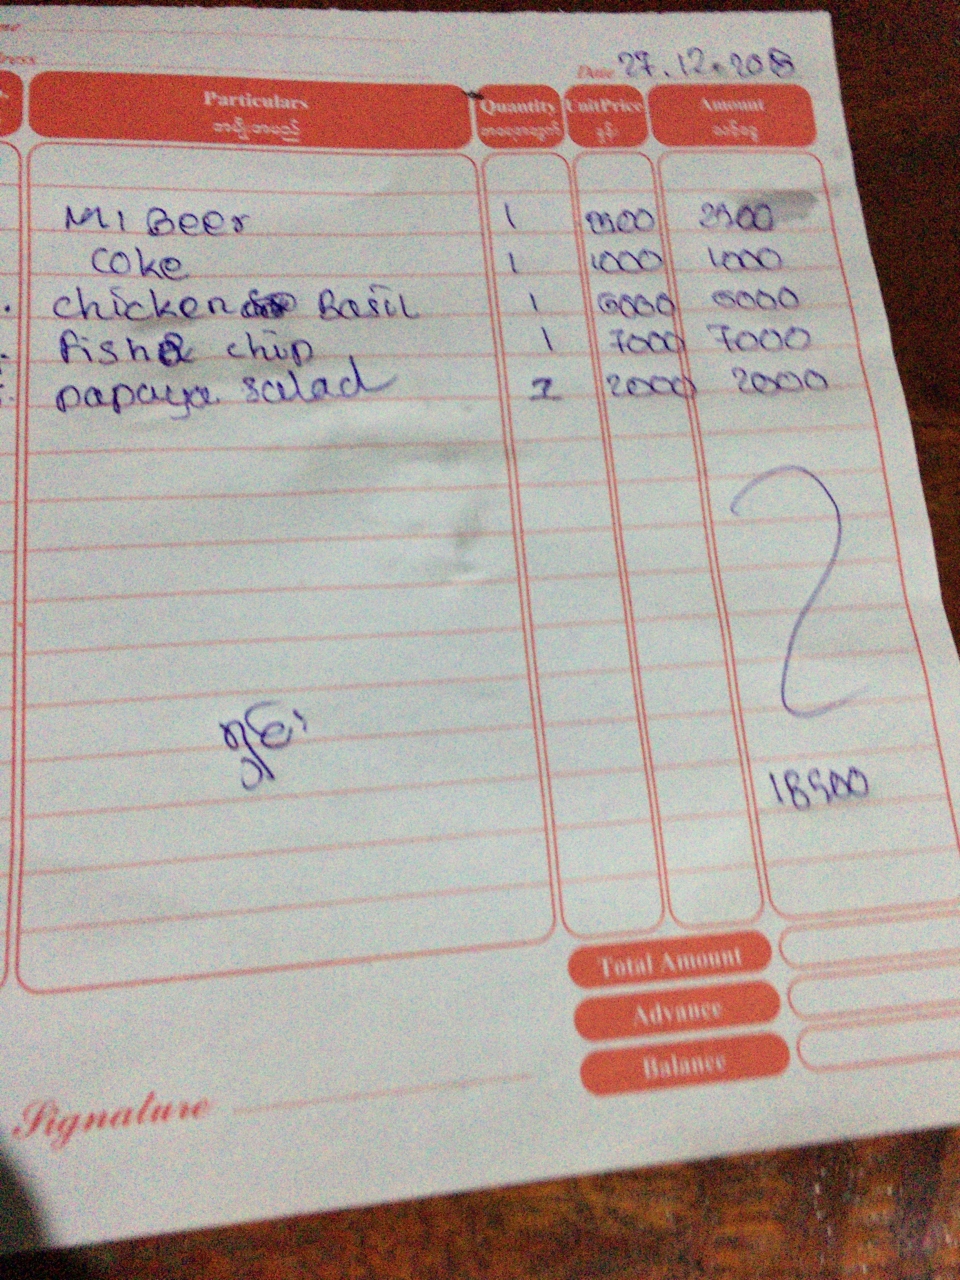 Date 27.12.2018
Particulars Quantity UnitPrice Amount
အမျိုးအမည် အရေအတွက် နှုန်း သင့်ငွေ
M1 Beer 1 2500 2500
Coke 1 1000 1000
chicken Basil 1 6000 6000
fish & chip 1 7000 7000
papaya salad 1 2000 2000
ရှင်း
18500
Total Amount
Advance
Balance
Signature